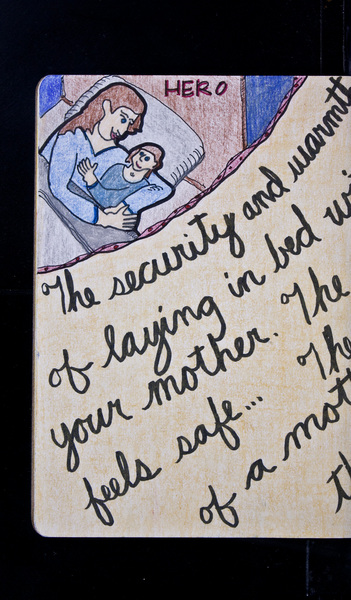 HERO
The security and warmth
of laying in bed wi
your mother. The
feels safe... The
of a mot
th